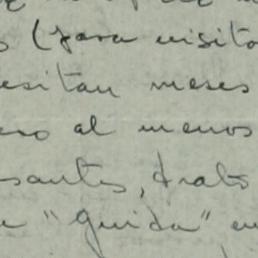 s (para visita
esitan meses
ero al menos
santes, trato
"guida" en